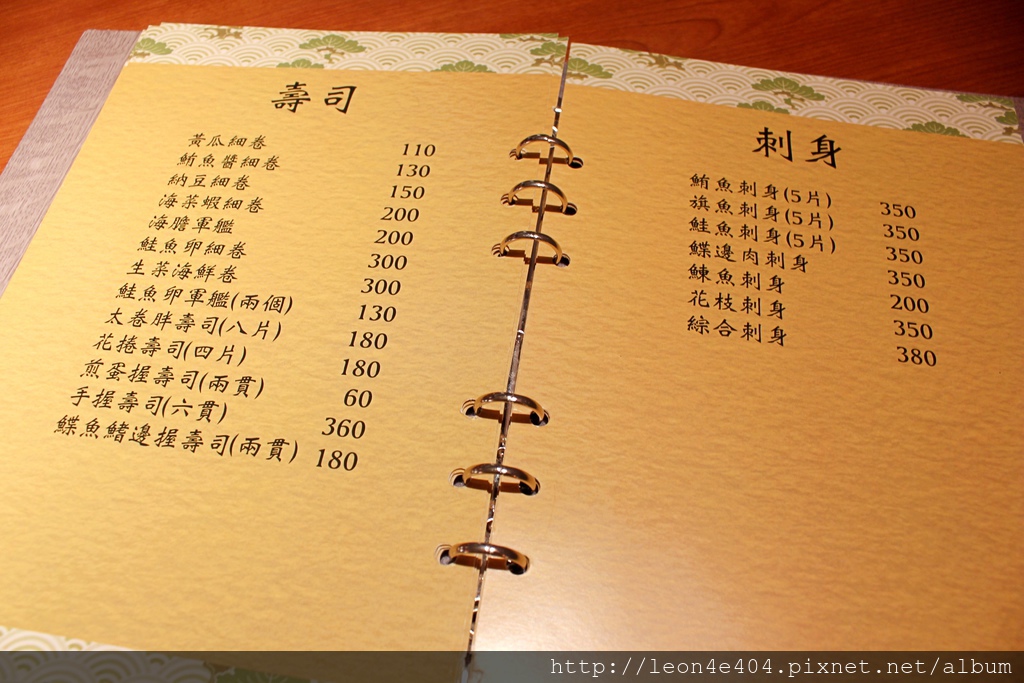 壽司
黃瓜細卷 110
鮪魚醬細卷 130
納豆細卷 150
海菜蝦細卷 200
海膽軍艦 200
鮭魚卵細卷 300
生菜海鮮卷 300
鮭魚卵軍艦(兩個) 130
太卷胖壽司(八片) 180
花捲壽司(四片) 180
煎蛋握壽司(兩貫) 60
手握壽司(六貫) 360
鰈魚鰭邊握壽司(兩貫) 180
刺身
鮪魚刺身(5片) 350
旗魚刺身(5片) 350
鮭魚刺身(5片) 350
鰈邊肉刺身 350
鰊魚刺身 200
花枝刺身 350
綜合刺身 380
http://leon4e404.pixnet.net/album